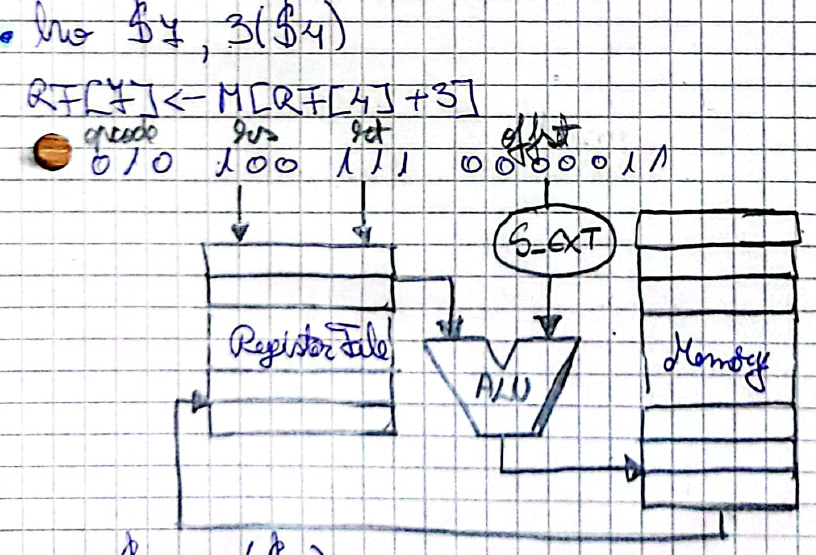 lw $7, 3($4)
RF[7] <- M[RF[4] + 3]
opcode rs rt offset
010 100 111 0000011
S_EXT
Register File
Memory
ALU